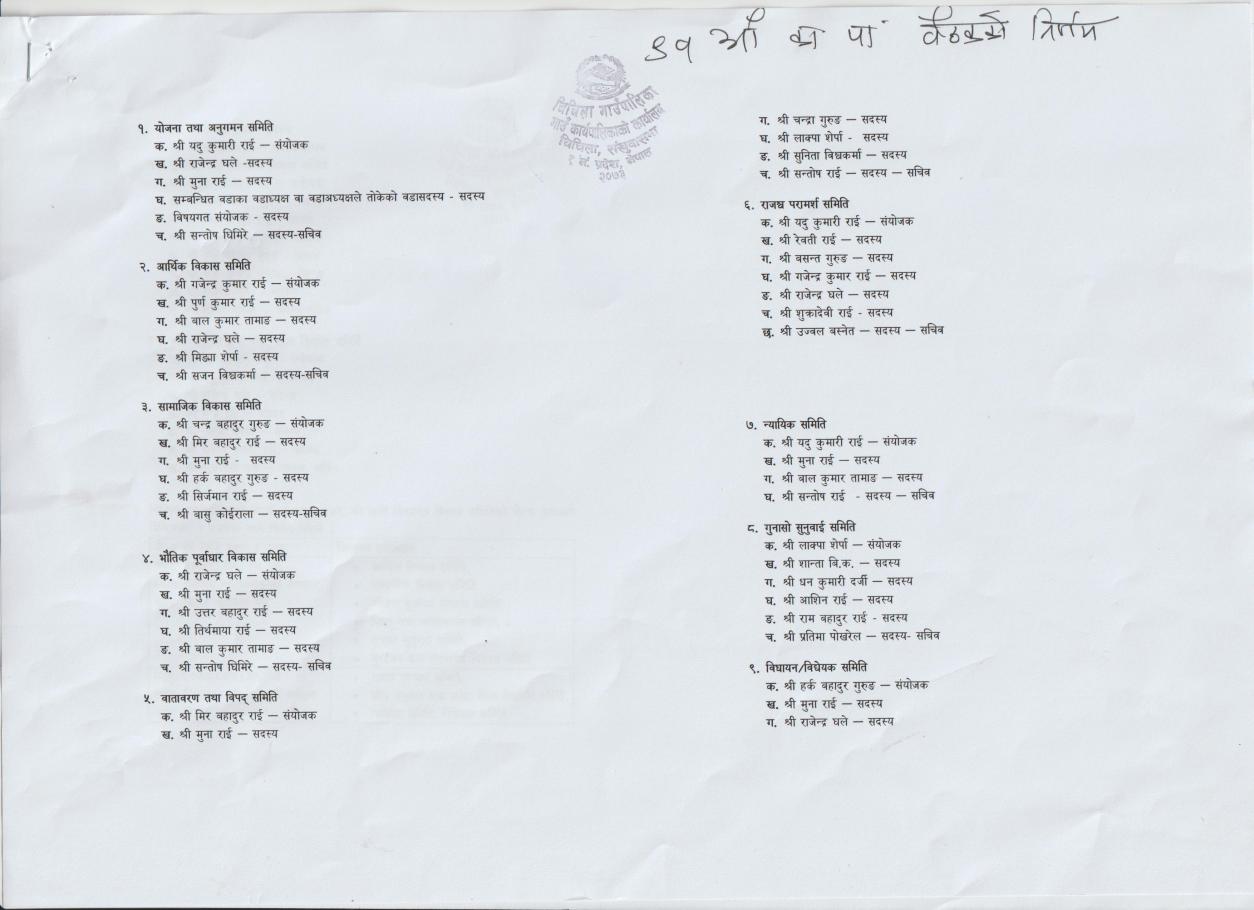 ९१ औं का पा बैठकको निर्णय
चिचिला गाउँपालिका
गाउँ कार्यपालिकाको कार्यालय
चिचिला, संखुवासभा
१ नं. प्रदेश, नेपाल
२०७३
१. योजना तथा अनुगमन समिति
क. श्री यदु कुमारी राई — संयोजक
ख. श्री राजेन्द्र घले -सदस्य
ग. श्री मुना राई — सदस्य
घ. सम्बन्धित वडाका वडाध्यक्ष वा वडाअध्यक्षले तोकेको वडासदस्य - सदस्य
ङ. विषयगत संयोजक - सदस्य
च. श्री सन्तोष घिमिरे — सदस्य-सचिव
२. आर्थिक विकास समिति
क. श्री गजेन्द्र कुमार राई — संयोजक
ख. श्री पुर्ण कुमार राई — सदस्य
ग. श्री बाल कुमार तामाङ — सदस्य
घ. श्री राजेन्द्र घले — सदस्य
ङ. श्री मिङमा शेर्पा - सदस्य
च. श्री सजन विश्वकर्मा — सदस्य-सचिव
३. सामाजिक विकास समिति
क. श्री चन्द्र बहादुर गुरुङ — संयोजक
ख. श्री मिर बहादुर राई — सदस्य
ग. श्री मुना राई - सदस्य
घ. श्री हर्क बहादुर गुरुङ - सदस्य
ङ. श्री सिर्जमान राई — सदस्य
च. श्री बासु कोईराला — सदस्य-सचिव
४. भौतिक पूर्वाधार विकास समिति
क. श्री राजेन्द्र घले — संयोजक
ख. श्री मुना राई — सदस्य
ग. श्री उत्तर बहादुर राई — सदस्य
घ. श्री तिर्थमाया राई — सदस्य
ङ. श्री बाल कुमार तामाङ — सदस्य
च. श्री सन्तोष घिमिरे — सदस्य- सचिव
५. वातावरण तथा विपद् समिति
क. श्री मिर बहादुर राई — संयोजक
ख. श्री मुना राई — सदस्य
ग. श्री चन्द्रा गुरुङ — सदस्य
घ. श्री लाक्पा शेर्पा - सदस्य
ङ. श्री सुनिता विश्वकर्मा — सदस्य
च. श्री सन्तोष राई — सदस्य — सचिव
६. राजश्व परामर्श समिति
क. श्री यदु कुमारी राई — संयोजक
ख. श्री रेवती राई — सदस्य
ग. श्री बसन्त गुरुङ — सदस्य
घ. श्री गजेन्द्र कुमार राई — सदस्य
ङ. श्री राजेन्द्र घले — सदस्य
च. श्री शुक्रादेवी राई - सदस्य
छ. श्री उज्वल बस्नेत — सदस्य — सचिव
७. न्यायिक समिति
क. श्री यदु कुमारी राई — संयोजक
ख. श्री मुना राई — सदस्य
ग. श्री बाल कुमार तामाङ — सदस्य
घ. श्री सन्तोष राई - सदस्य — सचिव
८. गुनासो सुनुवाई समिति
क. श्री लाक्पा शेर्पा — संयोजक
ख. श्री शान्ता बि.क. — सदस्य
ग. श्री धन कुमारी दर्जी — सदस्य
घ. श्री आशिन राई — सदस्य
ङ. श्री राम बहादुर राई - सदस्य
च. श्री प्रतिमा पोखरेल — सदस्य- सचिव
९. विधायन/विधेयक समिति
क. श्री हर्क बहादुर गुरुङ — संयोजक
ख. श्री मुना राई — सदस्य
ग. श्री राजेन्द्र घले — सदस्य